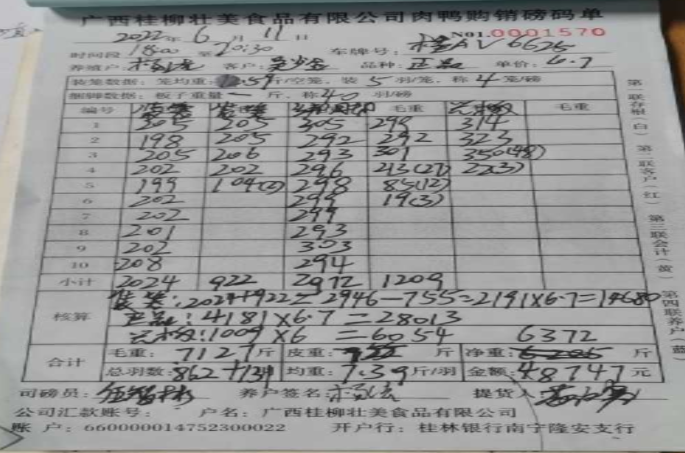 广西桂柳壮美食品有限公司肉鸭购销磅码单
2022年6月11日 NO1.0001570
时间段 1800 至 20:30 车牌号: 桂AV6625
养殖户: 客户: 品种: 正品 单价: 6.7
装笼数据: 笼均重: 斤/空笼, 装5羽/笼, 称4笼/磅
捆脚数据: 板子重量一斤, 称40羽/磅
编号 毛重 毛重
1 305 205 305 299 314
2 198 205 292 292 323
3 205 206 293 301 350(48)
4 202 202 296 213(27) 22(3)
5 199 104(2) 298 85(12)
6 202 299 19(3)
7 202 299
8 201 293
9 202 303
10 208 294
小计 2024 922 2972 1209
核算 装笼:2024+922=2946-755=2191×6.7=14680
正品:4181×6.7=28013
1009×6=6054 6372
合计 毛重: 7127斤 皮重: 斤 净重: 斤
总羽数: 862+134 均重: 7.39斤/羽 金额: 48747元
司磅员: 养户签名: 提货人
公司汇款账号: 户名: 广西桂柳壮美食品有限公司
账 户: 660000014752300022 开户行: 桂林银行南宁隆安支行
第一联存根(白) 第二联客户(红) 第三联会计(黄) 第四联养户(蓝)